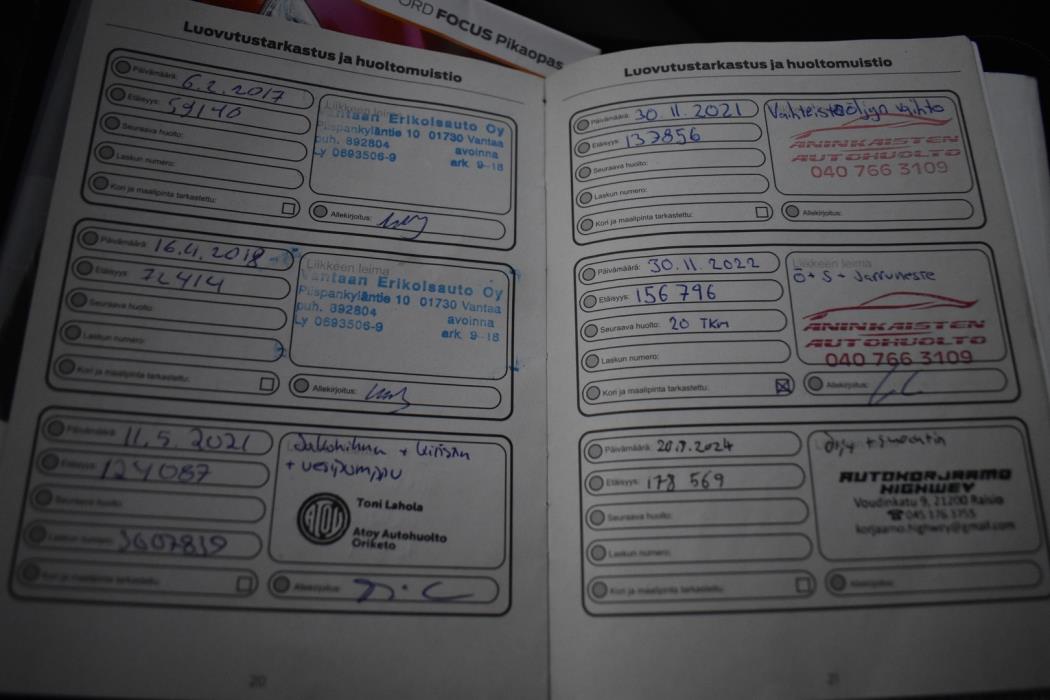 ORD FOCUS Pikaopas
Luovutustarkastus ja huoltomuistio
Päivämäärä: 6.2.2017
Etäisyys: 59140
Seuraava huolto:
Laskun numero:
Kori ja maalipinta tarkastettu:
Liikkeen leima
Vantaan Erikoisauto Oy
Piispankyläntie 10 01730 Vantaa
puh. 892804 avoinna
Ly 0693506-9 ark. 9-18
Allekirjoitus:
Päivämäärä: 16.4.2018
Etäisyys: 72414
Seuraava huolto:
Laskun numero:
Kori ja maalipinta tarkastettu:
Liikkeen leima
Vantaan Erikoisauto Oy
Piispankyläntie 10 01730 Vantaa
puh. 892804 avoinna
Ly 0693506-9 ark. 9-18
Allekirjoitus:
Päivämäärä: 11.5.2021
Etäisyys: 124087
Seuraava huolto:
Laskun numero: 3607819
Kori ja maalipinta tarkastettu:
Jakohihna + kiristin
+ vesipumppu
ATOY
Toni Lahola
Atoy Autohuolto
Oriketo
Allekirjoitus:
20
Luovutustarkastus ja huoltomuistio
Päivämäärä: 30.11.2021
Etäisyys: 137856
Seuraava huolto:
Laskun numero:
Kori ja maalipinta tarkastettu:
Vaihteistoöljyn vaihto
ANINKAISTEN
AUTOHUOLTO
040 766 3109
Allekirjoitus:
Päivämäärä: 30.11.2022
Etäisyys: 156796
Seuraava huolto: 20 TKm
Laskun numero:
Kori ja maalipinta tarkastettu:
Liikkeen leima
Ö + S + Jarruneste
ANINKAISTEN
AUTOHUOLTO
040 766 3109
Allekirjoitus:
Päivämäärä: 20.9.2024
Etäisyys: 178 569
Seuraava huolto:
Laskun numero:
Kori ja maalipinta tarkastettu:
öljy + suodatin
AUTOKORJAAMO
HIGHWEY
Voudinkatu 9, 21200 Raisio
045 176 3755
korjaamo.highwey@gmail.com
Allekirjoitus:
21